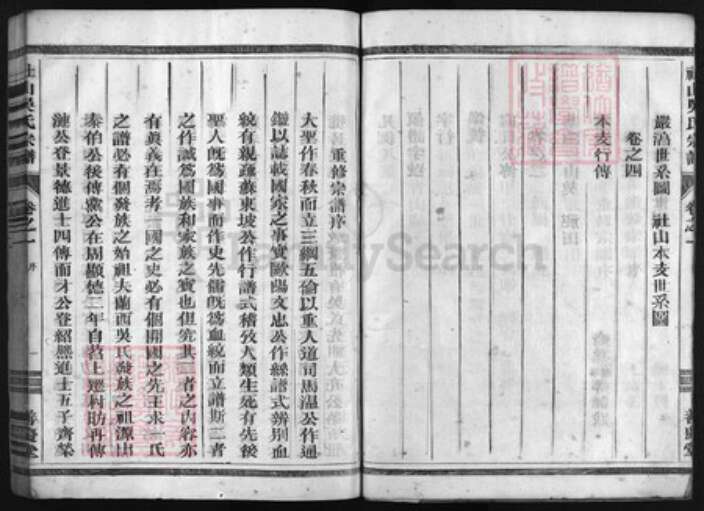 嚴溈世系圖 社山本支世系圖
卷之四
本支行傳
社山吳氏宗譜 卷之一
善慶堂
重修宗譜序
大聖作春秋而立三綱五倫以重人道司馬溫公作通
鑑以誌載國家之事實歐陽文忠公作絲譜式辨別血
統有親疎蘇東坡公作行譜式稽攷人類生死有先後
聖人旣爲國事而作史先儒旣爲血統而立譜斯二者
之作誠爲國族和家族之寶也但究其二者之內容亦
有眞義在焉考一國之史必有個開國之先王求一氏
之譜必有個發族之始祖夫蘭西吳氏發族之祖源出
泰伯公後傳黨公在周顯德二年自莒上遷村肪再傳
漣公登景德進士四傳而才公登紹熙進士五子齊榮
社山吳氏宗譜 卷之一 序 一 善慶堂
FamilySearch